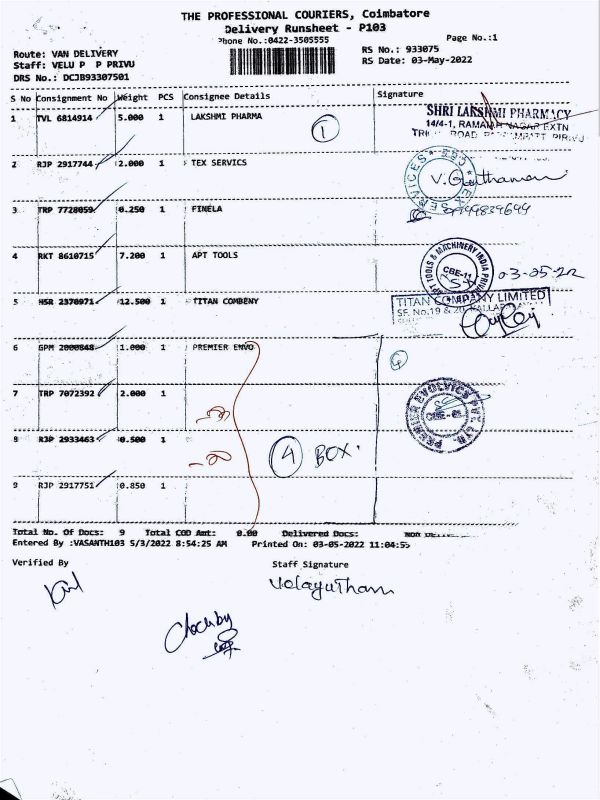 THE PROFESSIONAL COURIERS, Coimbatore
Delivery Runsheet - P103
Phone No.:0422-3505555
Page No.:1
Route: VAN DELIVERY
RS No.: 933075
Staff: VELU P P PRIVU
RS Date: 03-May-2022
DRS No.: DCJB93307501
S No Consignment No Weight PCS Consignee Details Signature
1 TVL 6814914 5.000 1 LAKSHMI PHARMA
1
SHRI LAKSHMI PHARMACY
14/4-1, RAMANA NAGAR EXTN
ROAD
2 RJP 2917744 2.000 1 TEX SERVICS
3 TRP 7728059 0.250 1 FINELA
4 RKT 8610715 7.200 1 APT TOOLS
APT TOOLS & MACHINERY INDIA
CBE-11
03-05-22
5 HSR 2370971 12.500 1 TITAN COMBENY
TITAN COMPANY LIMITED
SF. No.19 & 20
6 GPM 2000848 1.000 1 PREMIER ENVO
7 TRP 7072392 2.000 1
PREMIER EVOLVICS PVT. LTD.
8 RJP 2933463 0.500 1
4 BOX.
9 RJP 2917751 0.850 1
Total No. Of Docs: 9 Total COD Amt: 0.00 Delivered Docs:
Entered By :VASANTH103 5/3/2022 8:54:25 AM Printed On: 03-05-2022 11:04:55
Verified By Staff Signature
Velayutham